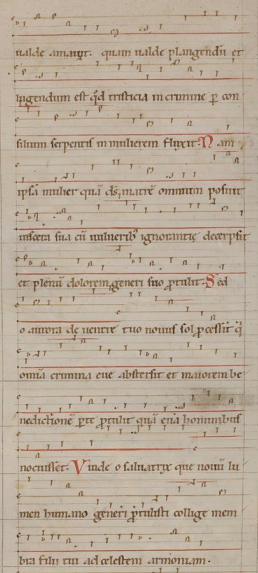 ualde amauit. quam ualde plangendũ et
lugendum est qd̃ tristicia in crimine ꝑ con
silium serpentis in mulierem fluxit. Nam
ipsa mulier quã ds̃ matrẽ omnium posuit
uiscera sua cũ uulnerib; ignorantie decerpsit
et plenũ dolorem generi suo ꝓtulit. Sed
o aurora de uentre tuo nouus sol ꝓcessit q̃
omia crimina eue abstersit et maiorem be
nedictionẽ ꝑ te ꝓtulit quã eua hominibus
nocuisset. Vnde o saluatrix que nouũ lu
men humano generi ꝓtulisti collige mem
bra filii tui ad celestem armoniam.